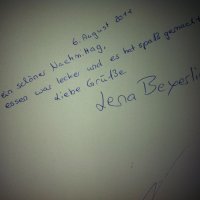 6. August 2017
ein schöner Nachmittag,
essen war lecker und es hat spaß gemacht
Liebe Grüße
Lena